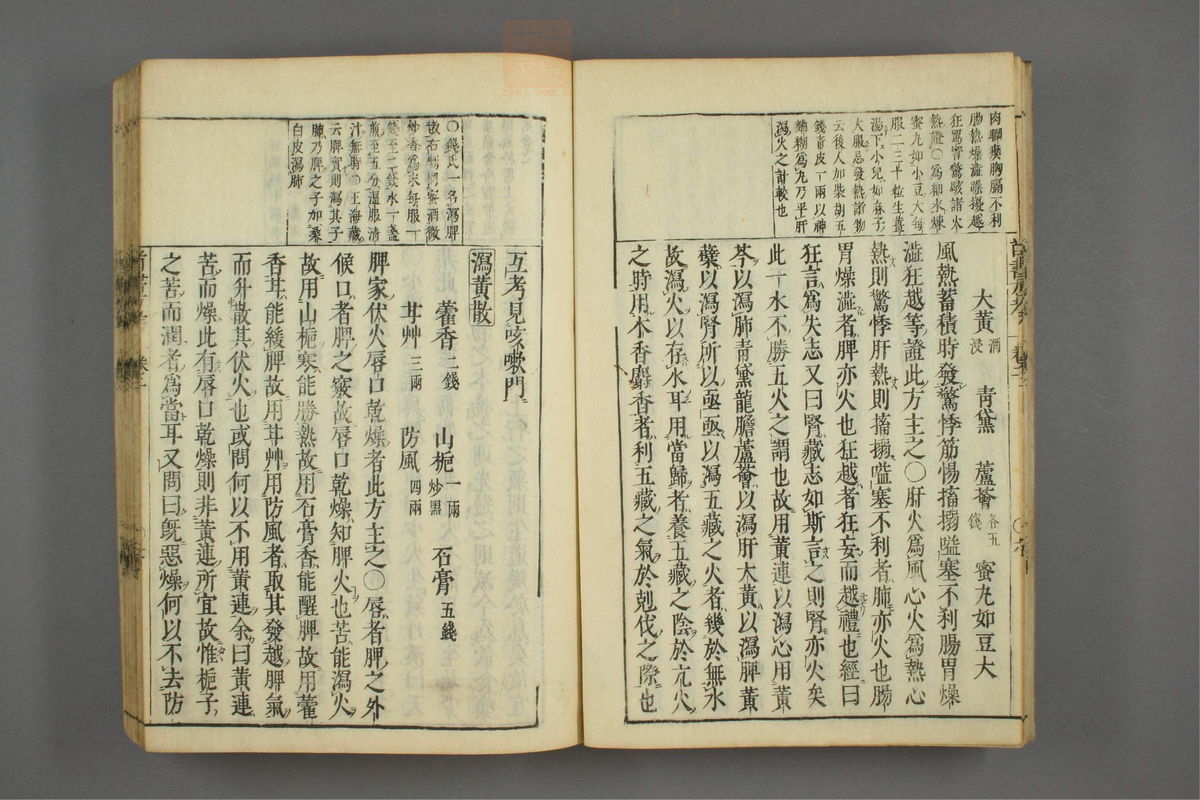 肉瞤瘈胸膈不利
腸熱燥澁躁擾越
狂罵詈驚駭諸火
熱證○爲細末煉
蜜丸如小豆大每
服二三十粒生薑
湯下小兒如麻子
大服忌發熱諸物
云後人加柴胡五
錢靑皮一兩以神
麴糊爲丸乃平肝
瀉火之計較也
大黃 酒浸 靑黛 蘆薈 各五錢 蜜丸如豆大
風熱蓄積時發驚悸筋惕搐搦嗌塞不利腸胃燥
澁狂越等證此方主之○肝火爲風心火爲熱心
熱則驚悸肝熱則搐搦嗌塞不利者肺亦火也腸
胃燥澁者脾亦火也狂越者狂妄而越禮也經曰
狂言爲失志又曰腎藏志如斯言之則腎亦火矣
此一水不勝五火之謂也故用黃連以瀉心用黃
芩以瀉肺靑黛龍膽蘆薈以瀉肝大黃以瀉脾黃
蘗以瀉腎所以亟亟以瀉五藏之火者幾於無水
故瀉火以存水耳用當歸者養五藏之陰於亢火
之時用木香麝香者利五藏之氣於剋伐之際也
○錢氏一名瀉脾
散右剉同蜜酒微
炒香爲末每服一
錢至二錢水一盞
煎至五分溫服淸
汁無時○王海藏
云脾實則瀉其子
肺乃脾之子加桑
白皮瀉肺
互考見咳嗽門
瀉黃散
藿香 二錢 山梔 一兩炒黑 石膏 五錢
甘艸 三兩 防風 四兩
脾家伏火唇口乾燥者此方主之○唇者脾之外
候口者脾之竅故唇口乾燥知脾火也苦能瀉火
故用山梔寒能勝熱故用石膏香能醒脾故用藿
香甘能緩脾故用甘艸用防風者取其發越脾氣
而升散其伏火也或問何以不用黃連余曰黃連
苦而燥此有唇口乾燥則非黃連所宜故惟梔子
之苦而潤者爲當耳又問曰旣惡燥何以不去防